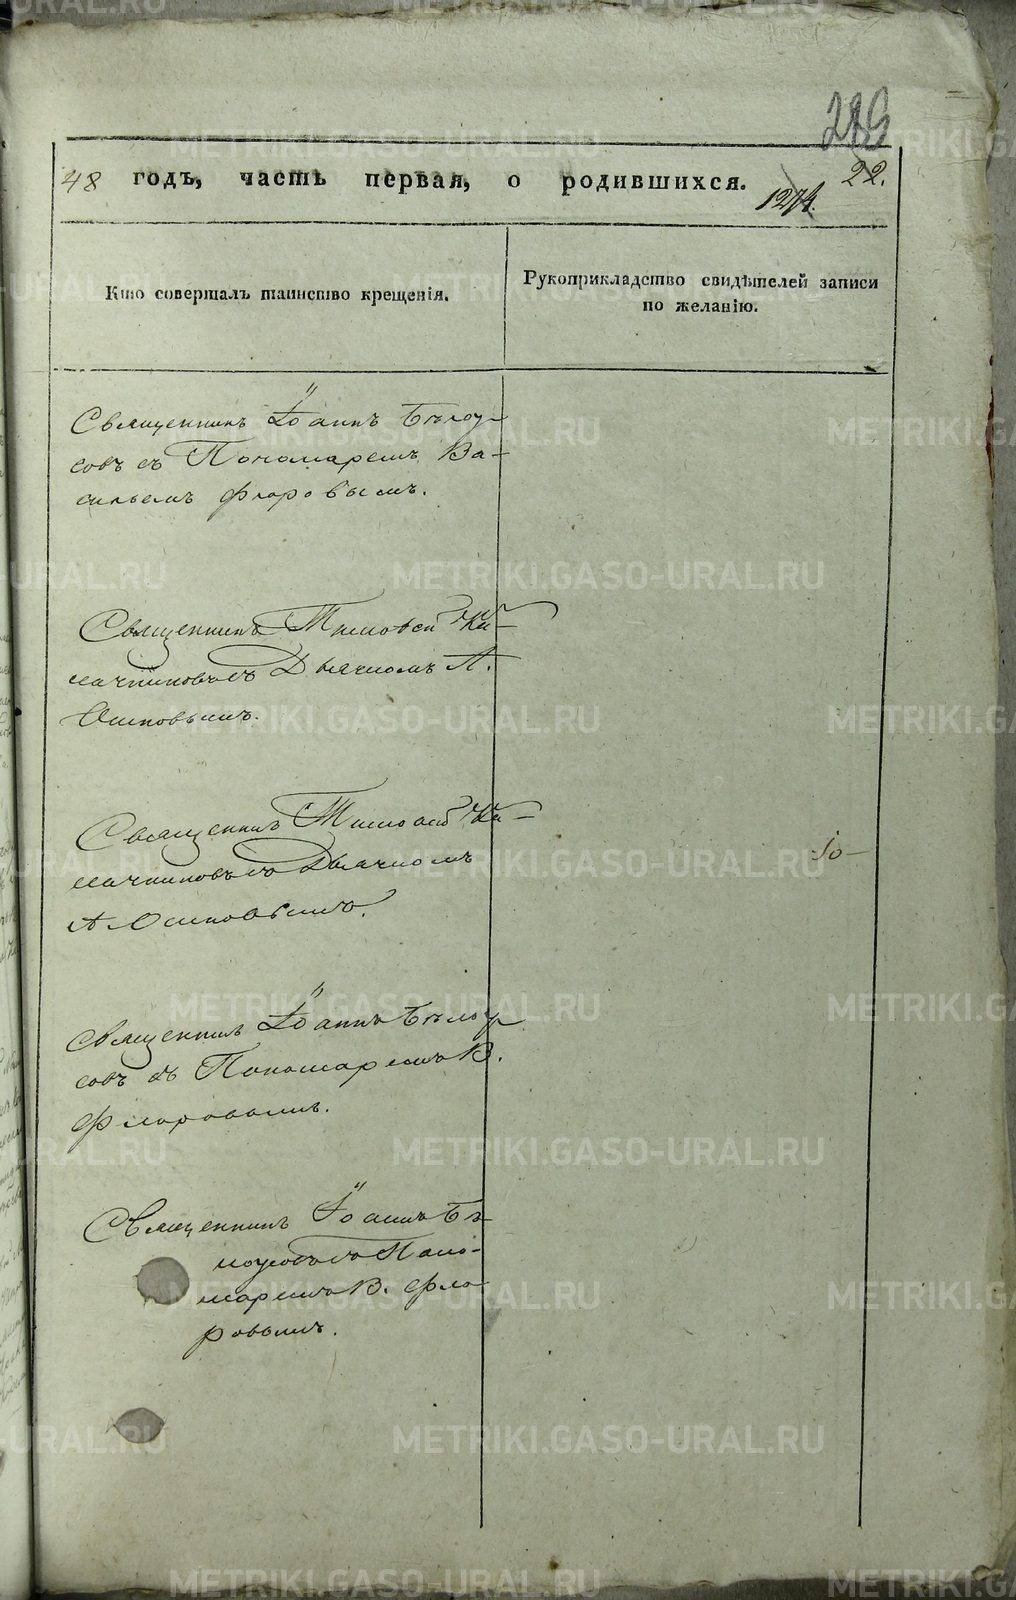 289
48 годъ, часть первая, о родившихся.
1274. 22.
Кто совершалъ таинство крещенія.
Рукоприкладство свидѣтелей записи
по желанію.
Священникъ Іоаннъ Бѣлоу-
совъ съ Пономаремъ Ва-
сильемъ Флоровымъ.
Священникъ Тимофей
съ Дьячкомъ А.
Осиповымъ.
Священникъ Тимофей
съ Дьячкомъ
А Осиповымъ.
10-
Священникъ Іоаннъ Бѣлоу
совъ съ Пономаремъ В.
Флоровымъ.
Священникъ Іоаннъ Бѣ-
лоусовъ съ Поно-
маремъ В. Фло-
ровымъ.
METRIKI.GASO-URAL.RU